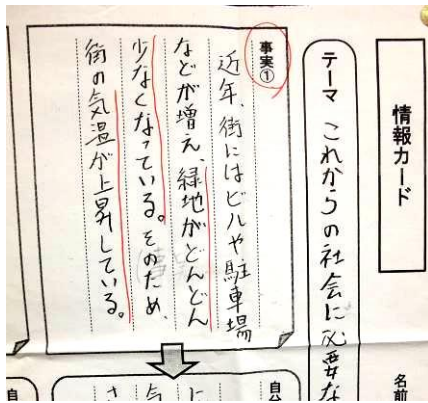 情報カード
名前
テーマ これからの社会に必要な
事実①
近年、街にはビルや駐車場
などが増え、緑地がどんどん
少なくなっている。そのため、
街の気温が上昇している。
自分
に
気
さ
自